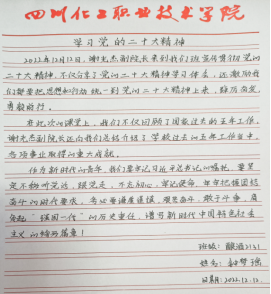 四川化工职业技术学院
学习党的二十大精神
2022年12月12日，谢光杰副院长来到我们班宣传贯彻党的
二十大精神，不仅分享了党的二十大精神学习体会，还激励我
们要把思想和行动统一到党的二十大精神上来，踔厉奋发、
勇毅前行。
在此次的课堂上，我们不仅回顾了国家过去的五年工作，
谢光杰副院长还向我们总结介绍了学校过去的五年工作当中，
各项事业取得的重大成就。
作为新时代的青年，我们要牢记习近平总书记的嘱托，要坚
定不移听党话、跟党走，不忘初心、牢记使命，牢牢把握团结
奋斗的时代要求，务必要谦虚谨慎、艰苦奋斗、敢于斗争，肩
负起"强国一代"的历史重任，谱写新时代中国特色社会
主义的绚丽篇章！
班级：酿酒2131
姓名：
日期：2022.12.12